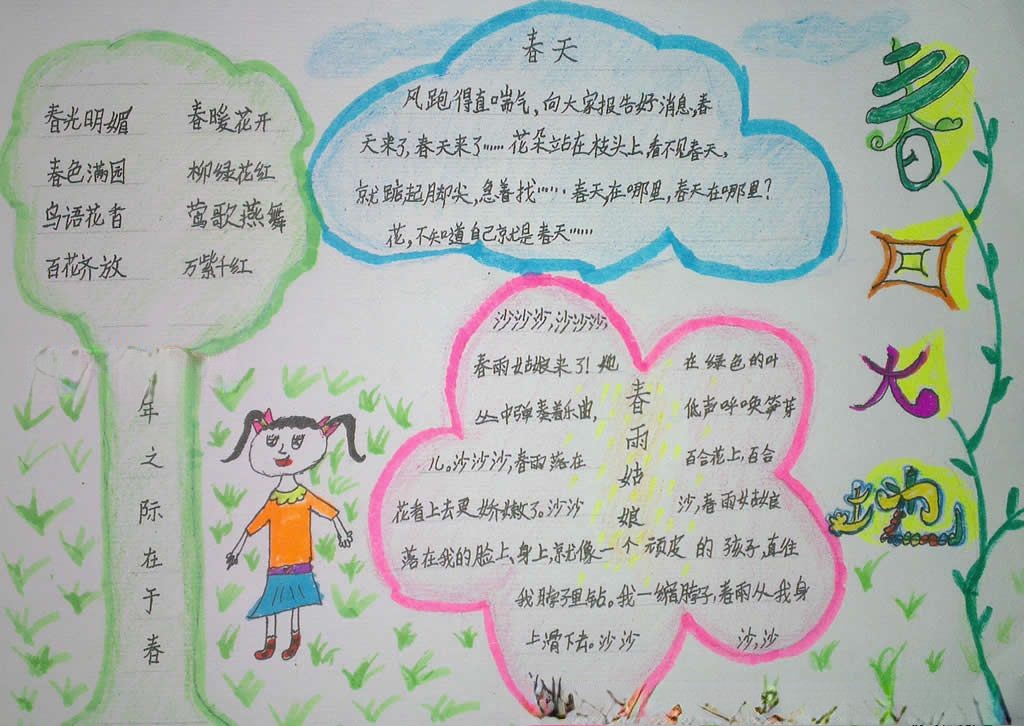 春光明媚 春暖花开
春色满园 柳绿花红
鸟语花香 莺歌燕舞
百花齐放 万紫千红
年之际在于春
春天
风跑得直喘气,向大家报告好消息,春
天来了,春天来了……花朵立站在枝头上看不见春天,
就踮起脚尖,急着找……春天,在哪里,春天在哪里?
花,不知道自己就是春天……
春雨姑娘
沙沙沙,沙沙沙,
春雨姑娘来了!她 在绿色的叶
丛中弹奏着乐曲, 低声呼唤笋芽
儿。沙沙沙,春雨落在 百合花上,百合
花看上去更娇嫩了。沙沙 沙,春雨姑娘
落在我的脸上、身上,就像一个顽皮的孩子,直往
我脖子里钻。我一缩脖子,春雨从我身
上滑下去。沙沙 沙,沙
春回大地